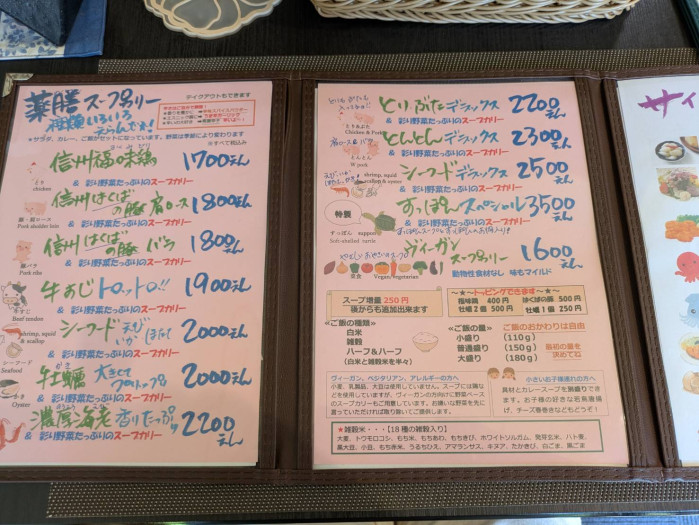 テイクアウトもできます
薬膳スープカリー
種類いろいろ
えらんでネ!
＊サラダ、カレー、ご飯がセットになっています。野菜は季節により変わります
＊すべて税込み
信州福味鶏 1700えん
とり
chicken
& 彩り野菜たっぷりのスープカリー
信州はくばの豚 肩ロース 1800えん
豚・肩ロース
Pork sholder loin
& 彩り野菜たっぷりのスープカリー
信州はくばの豚 バラ 1800えん
豚バラ
Pork ribs
& 彩り野菜たっぷりのスープカリー
牛すじトロットロ!! 1900えん
牛すじ
Beef tendon
& 彩り野菜たっぷりのスープカリー
シーフード えび いか ほたて 2000えん
shrimp, squid
& scallop
シーフード
Seafood
& 彩り野菜たっぷりのスープカリー
牡蠣 大きくて 2000えん
カキ
Oyster
& 彩り野菜たっぷりのスープカリー
濃厚海老 香りたっぷり 2200えん
& 彩り野菜たっぷりのスープカリー
とりぶたデラックス 2200えん
とり&ぶた
Chicken & Pork
& 彩り野菜たっぷりのスープカリー
肩ロース& バラ
とんとんデラックス 2300えん
とんとん
W pork
& 彩り野菜たっぷりのスープカリー
シーフードデラックス 2500えん
shrimp, squid
scallop & oyster
& 彩り野菜たっぷりのスープカリー
特製
すっぽんスペシャル 3500えん
すっぽん suppon
Soft-shelled turtle
& 彩り野菜たっぷりのスープカリー
ヴィーガンスープカリー 1600えん
菜食 Vegan/vegetarian
動物性食材なし 味もマイルド
スープ増量 250円
後からも追加出来ます
～★～トッピングできます～★～
福味鶏 400円 はくばの豚 500円
牡蠣2個 500円 牡蠣1個 250円
≪ご飯の種類≫
白米
雑穀
ハーフ&ハーフ
(白米と雑穀米を半々)
≪ご飯の量≫
小盛り (110g)
普通盛り (150g)
大盛り (180g)
ご飯のおかわりは自由
最初の量を
決めてね
ヴィーガン、ベジタリアン、アレルギーの方へ
小麦、乳製品、大豆は使用していません。スープには鶏な
どを使用していますが、ヴィーガンの方向けに野菜ベース
のスープカリーもご用意しています。お嫌いな野菜を先に
言っていただければ取り除いてご提供します。
小さいお子様連れの方へ
具材とカレースープを別盛りでき
ます。お子様の好きな若鳥唐揚
げ、チーズ春巻きなどもどうぞ!
★雑穀米・・・【18種の雑穀入り】
大麦、トウモロコシ、もち米、もちあわ、もちきび、ホワイトソルガム、発芽玄米、ハト麦、
黒大豆、小豆、もち赤米、うるちひえ、アマランサス、キヌア、たかきび、白ごま、黒ごま
サイ